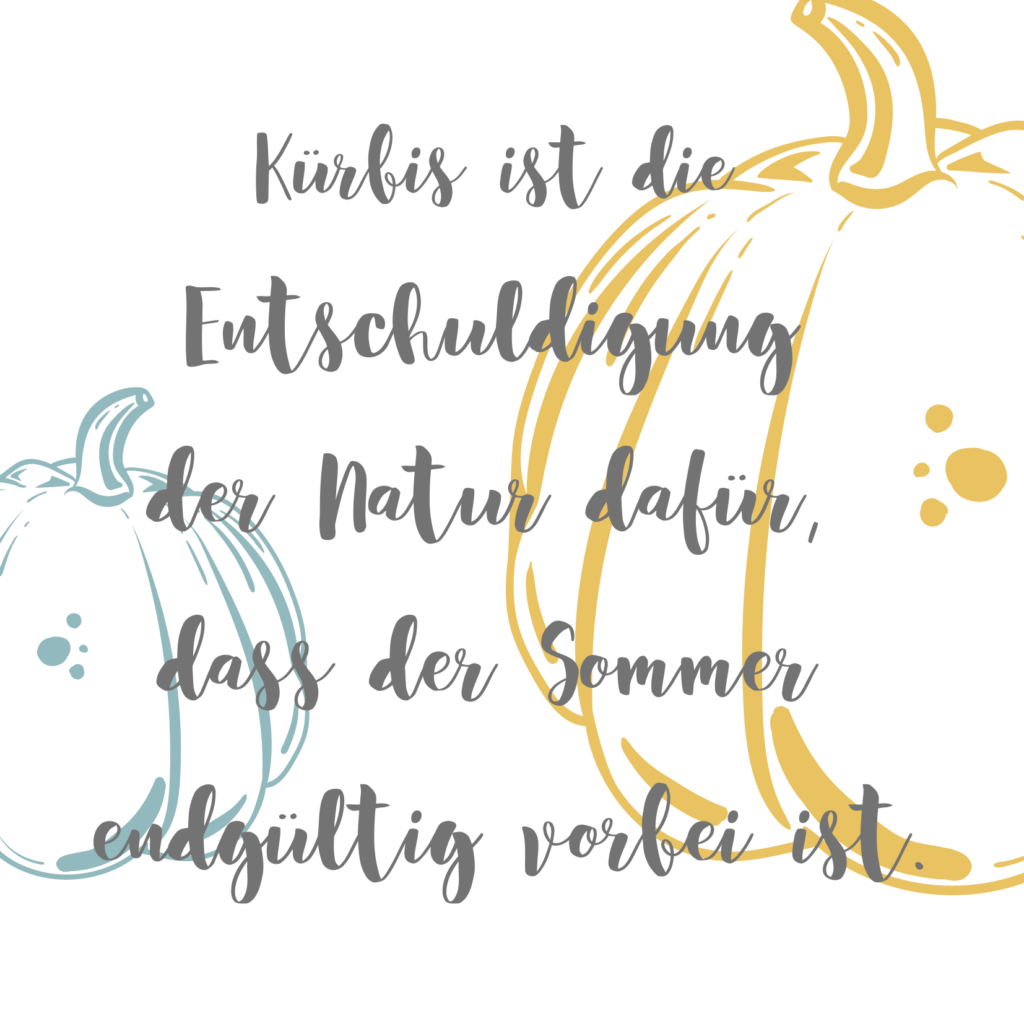 Kürbis ist die
Entschuldigung
der Natur dafür,
dass der Sommer
endgültig vorbei ist.